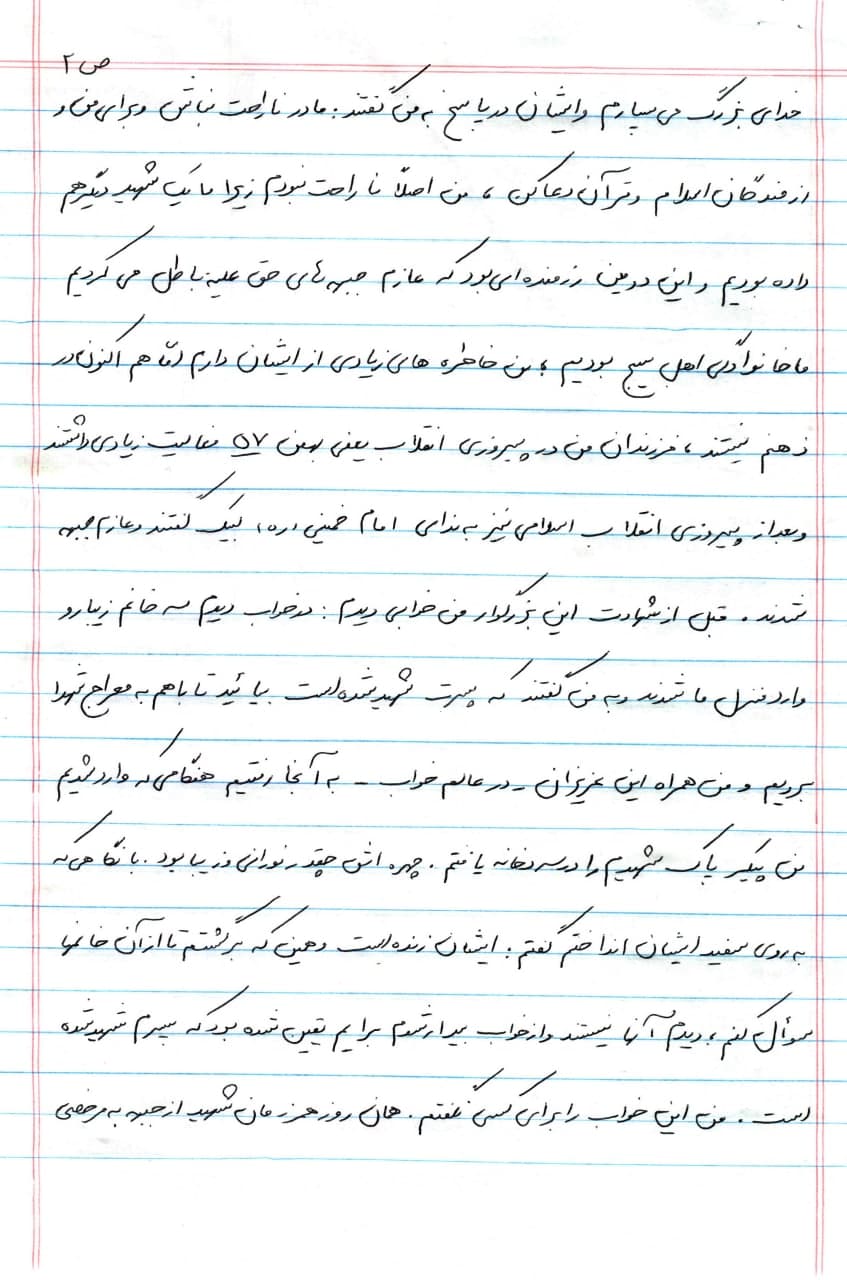 ص ۲
خدای بزرگ می سپارم وایشان در پاسخ به من گفتند: مادر ناراحت نباش وبرای من و
رزمندگان اسلام وقرآن دعا کن، من اصلاً ناراحت نبودم زیرا ما یک شهید دیگر هم
داده بودیم و این دومین رزمنده ای بود که عازم جبهه های حق علیه باطل می کردیم
ما خانوادگی اهل بسیج بودیم؛ من خاطره های زیادی از ایشان دارم امّا هم اکنون در
ذهنم نیستند، فرزندان من در پیروزی انقلاب یعنی بهمن ۵۷ فعالیت زیادی داشتند
وبعد از پیروزی انقلاب اسلامی نیز به ندای امام خمینی (ره) لبیک گفتند وعازم جبهه
شدند. قبل از شهادت این بزرگوار من خوابی دیدم: در خواب دیدم سه خانم زیبارو
وارد منزل ما شدند وبه من گفتند که پسرت شهید شده است بیائید تا باهم به معراج شهدا
برویم و من همراه این عزیزان - در عالم خواب - به آنجا رفتیم هنگامی که وارد شدیم
من پیکر پاک شهیدم را در سردخانه یافتم. چهره اش چقدر نورانی وزیبا بود. با نگاهی که
به روی سفید ایشان انداختم گفتم: ایشان زنده است وهمین که برگشتم تا از آن خانمها
سوأل کنم، دیدم آنها نیستند واز خواب بیدار شدم برایم یقین شده بود که پسرم شهید شده
است. من این خواب را برای کسی نگفتم. همان روز همرزمان شهید از جبهه به مرخصی